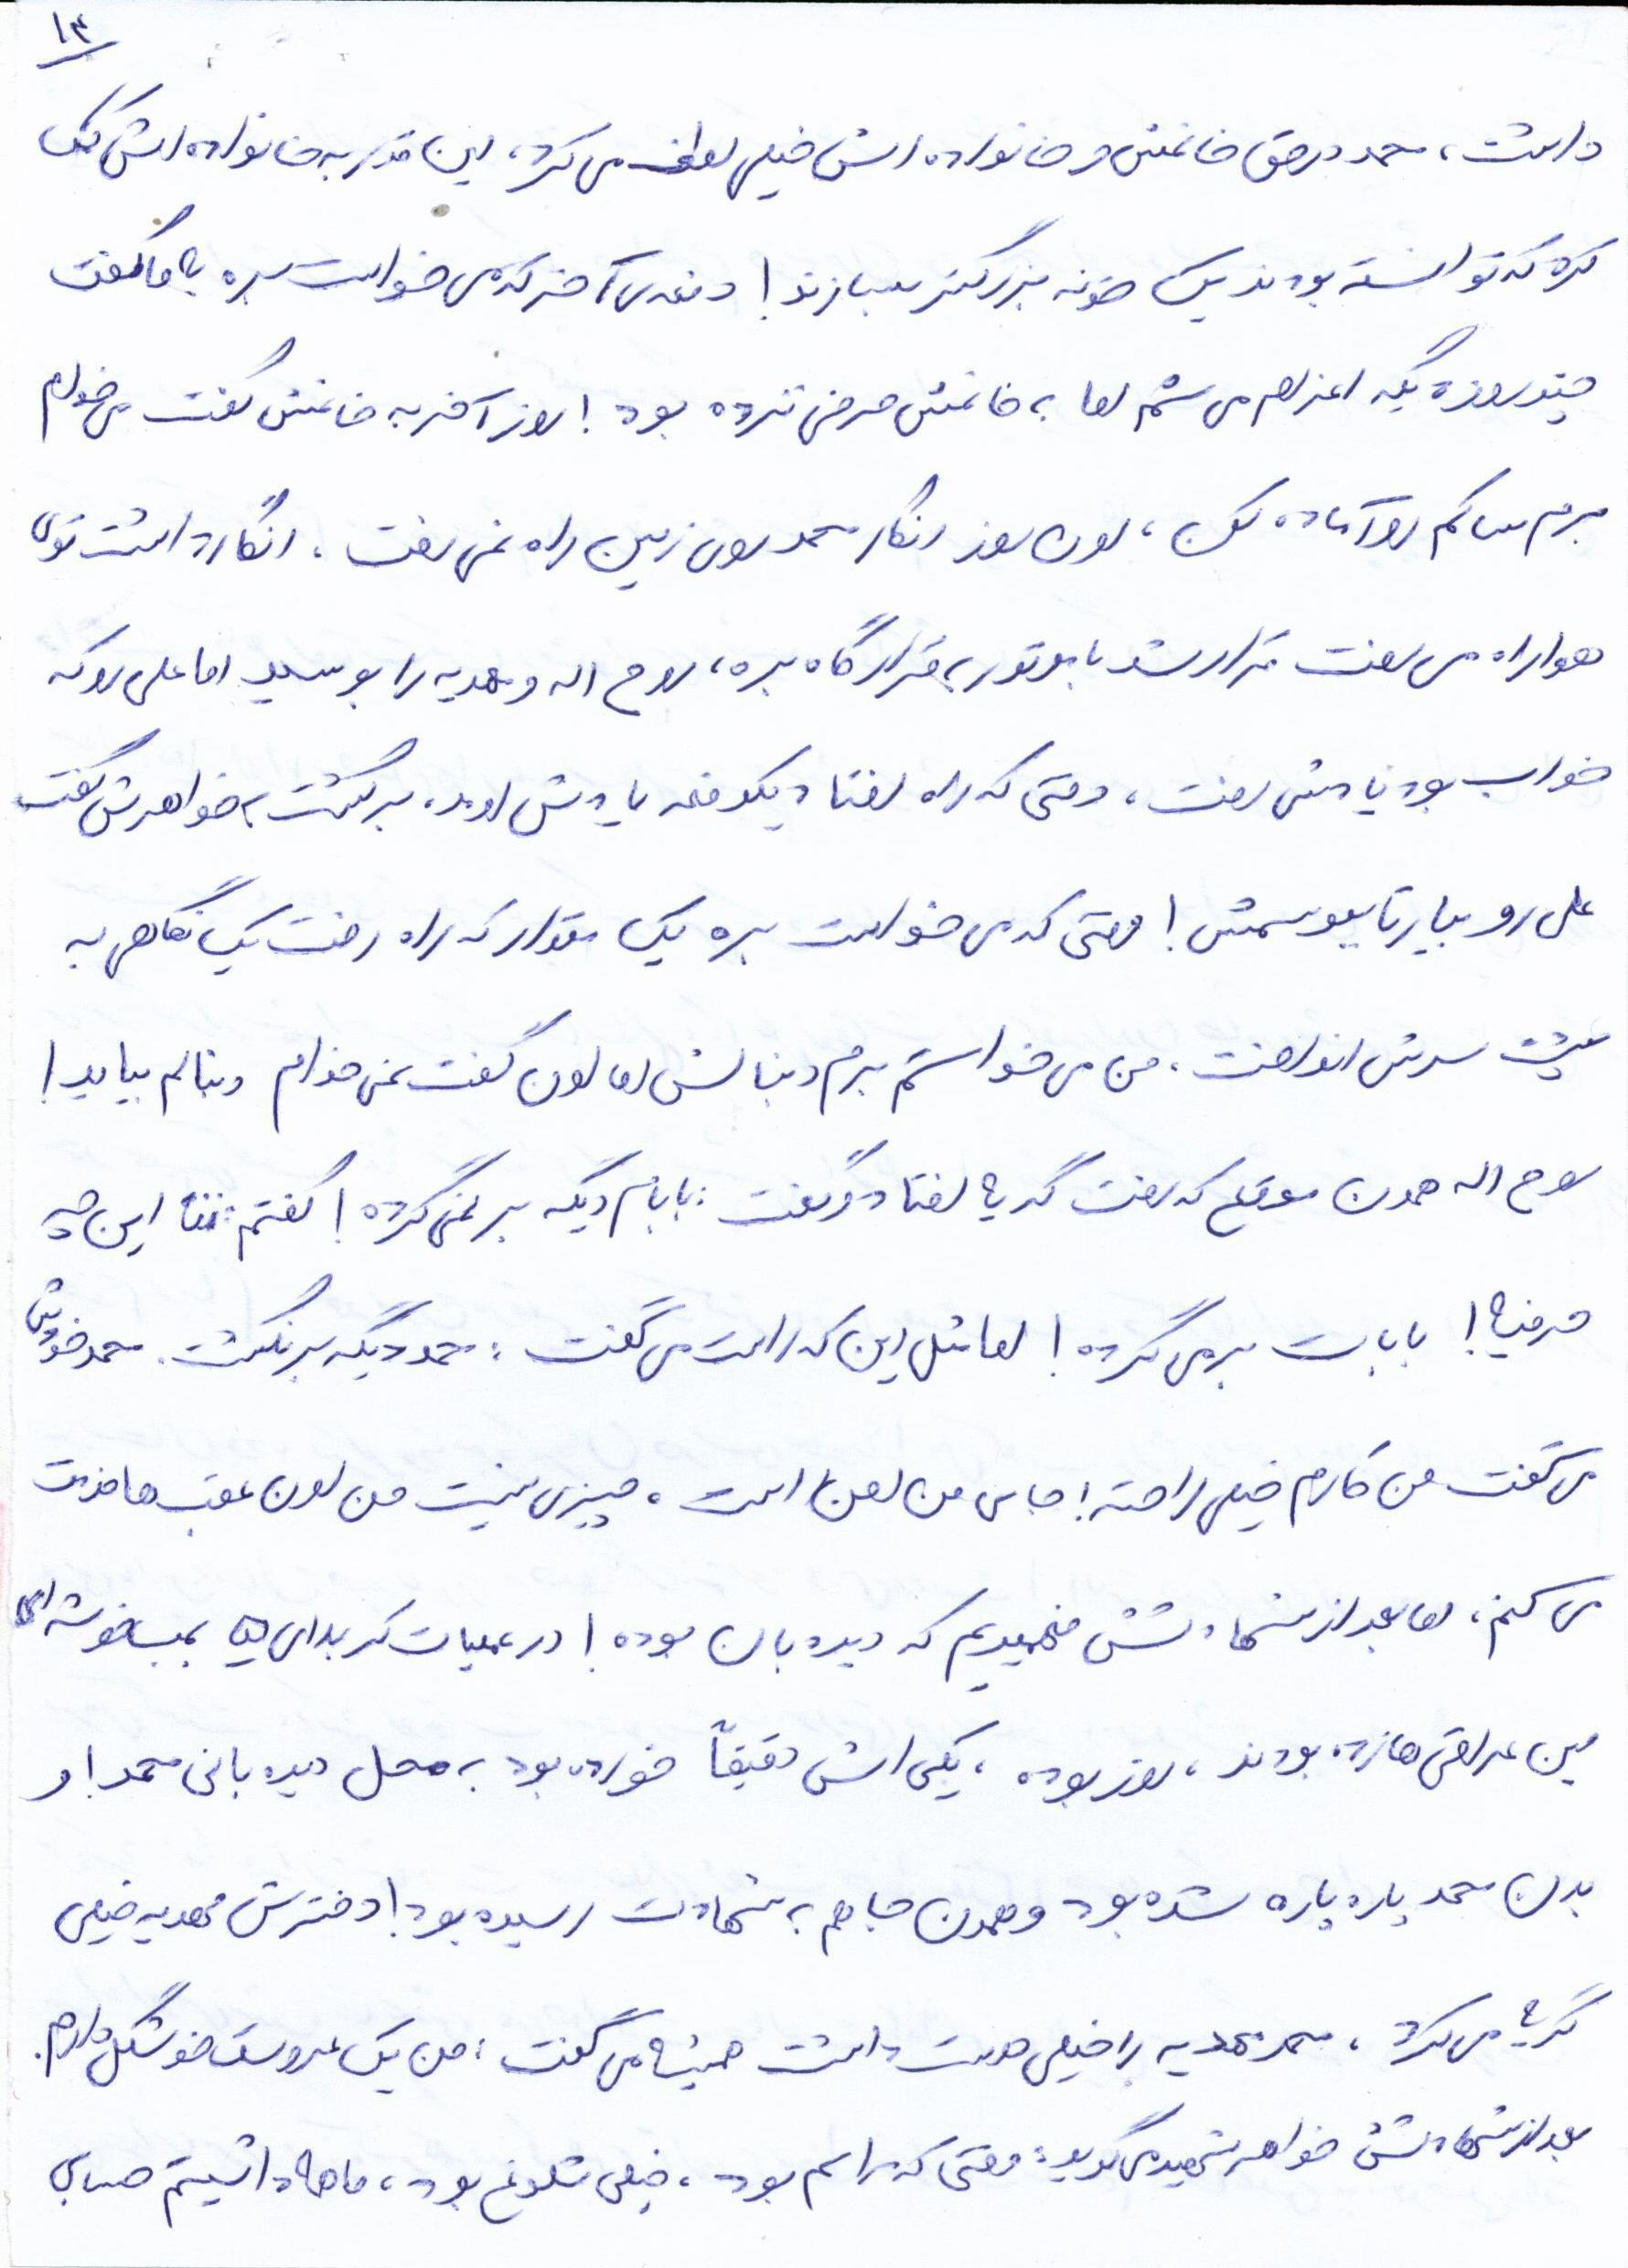 ۱۳
داشت، محمد در حق خانمش و خانواده اش خیلی لطف می کرد، این قدر به خانواده اش کمک
کرد که توانسته بودند یک خونه بزرگتر بسازند! دفعه ی آخر که می خواست بره به ما گفت
چند روز دیگه اعزام می شم اما به خانمش حرفی نزده بود! روز آخر به خانمش گفت می خوام
برم ساکم رو آماده کن، اون روز انگار محمد روی زمین راه نمی رفت. انگار داشت توی
هوا راه می رفت قرار شد با موتور به قرارگاه بره، روح اله و مهدیه را بوسید اما علی رو که
خواب بود یادش رفت، وقتی که راه افتاد یکدفعه یادش اومد، برگشت به خواهرش گفت
علی رو بیار تا ببوسمش! وقتی که می خواست بره یک مقدار که راه رفت یک نگاهی به
پشت سرش انداخت. من می خواستم برم دنبالش اما اون گفت نمی خوام دنبالم بیاید!
روح اله همون موقع که رفت گریه افتاد و گفت: بابام دیگه بر نمی گرده! گفتم: ننه این چه
حرفیه! بابات برمی گرده! اما مثل این که راست می گفت: محمد دیگه برنگشت. محمد خودش
می گفت من کارم خیلی راحته! جای من امن است، چیزی نیست من اون عقب ها خدمت
می کنم، اما بعد از شهادتش فهمیدیم که دیده بان بوده! در عملیات کربلای ۵ بمب خوشه ای
مین عراقی ها زده بودند، روز بوده، یکی اش دقیقاً خورده بود به محل دیده بانی محمد! و
بدن محمد پاره پاره شده بود و همون جا هم به شهادت رسیده بود! دخترش مهدیه خیلی
گریه می کرد، محمد مهدیه را خیلی دوست داشت همیشه می گفت: من یک عروسک خوشگل دارم.
بعد از شهادتش خواهر شهید می گوید: وقتی که مراسم بود، خیلی شلوغ بود، ما هم داشتیم حسابی